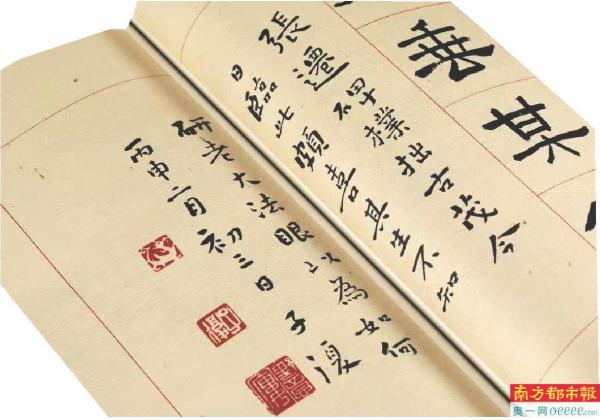 張遷碑樸拙古茂今
日臨此頗喜其生不知
研老大法眼以為如何
丙申二月初三日 子復
南方都市報
奥一网oeeee.com